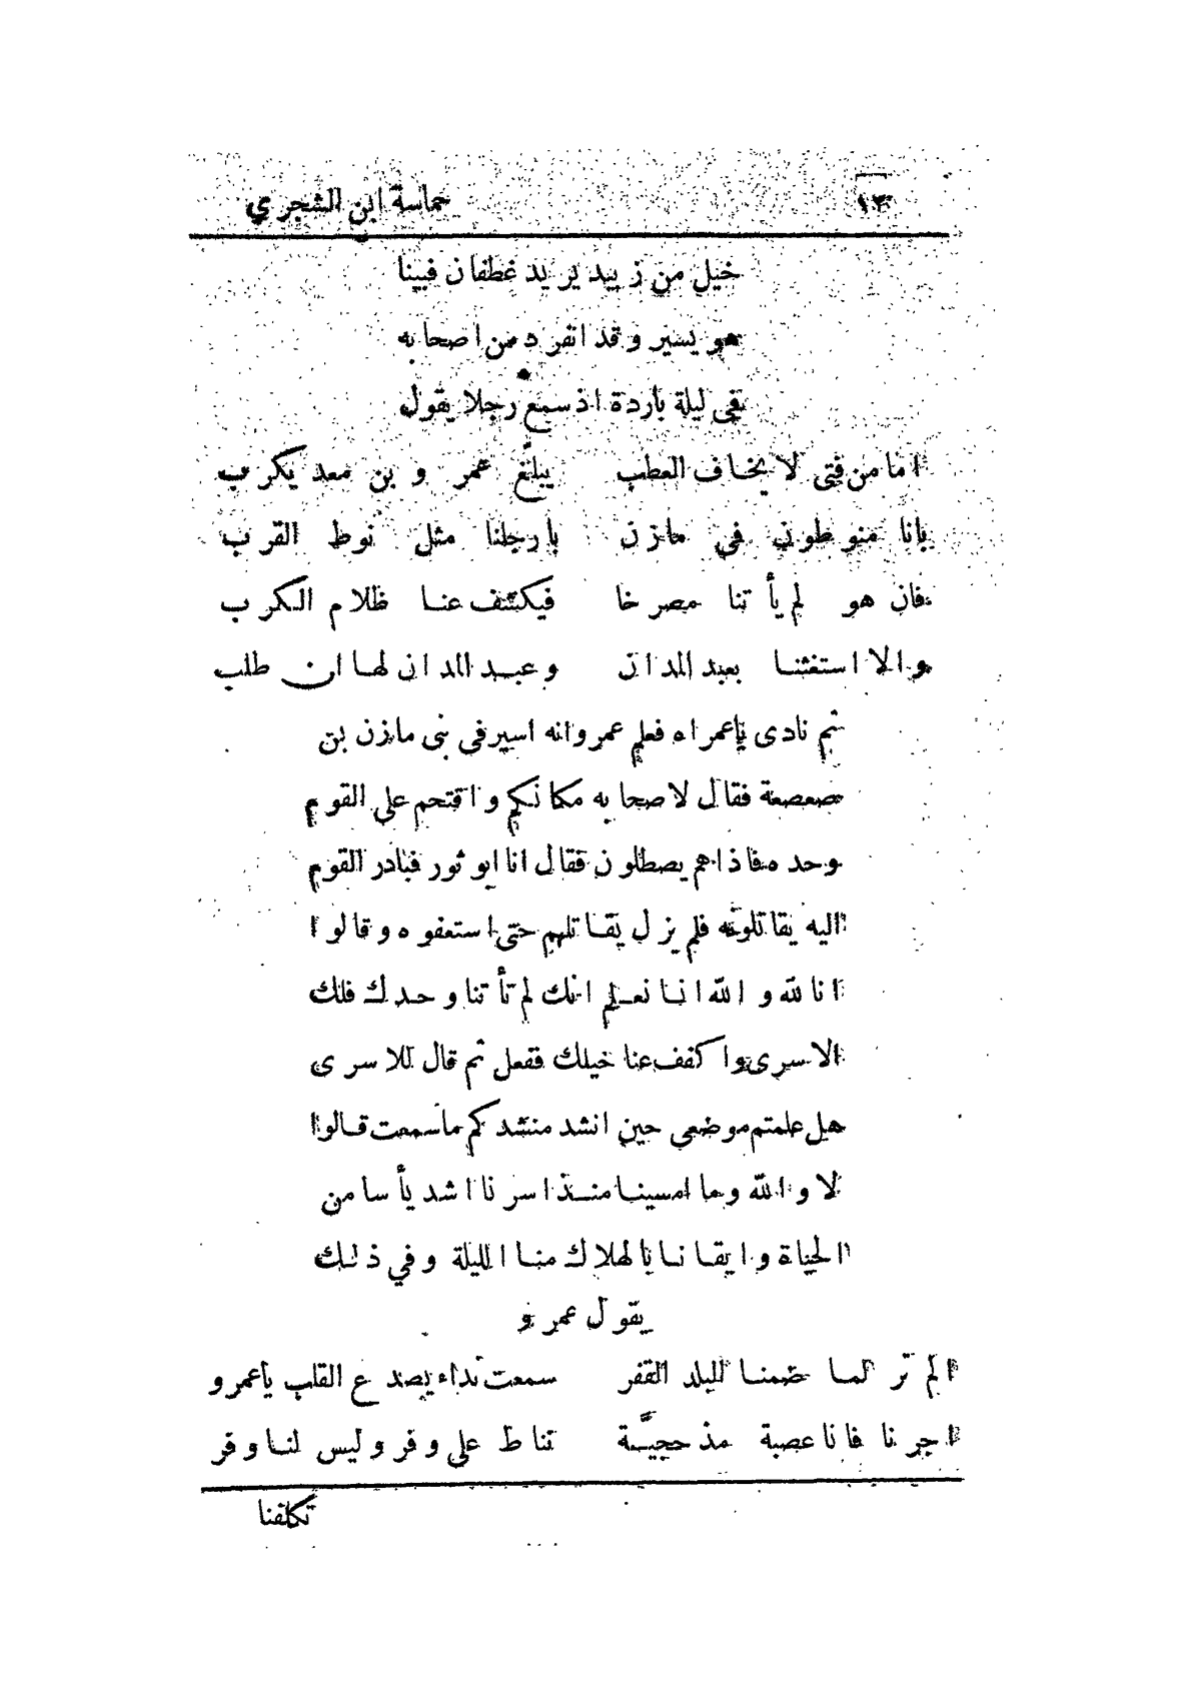 ١٣ حماسة ابن الشجري
خيل من زبيد يريد غطفان فبينا
هو يسير وقد انفرد من اصحابه
فى ليلة باردة اذ سمع رجلا يقول
اما من فتى لا يخاف العطب يبلّغ عمرو بن معد يكرب
بانا منوطون في مازن بارجلنا مثل نوط القرب
فان هو لم يأتنا مصرخا فيكشف عنا ظلام الكرب
والا استغثنا بعبد المدان وعبد المدان لها ان طلب
ثم نادى ياعمراه فعلم عمرو انه اسير فى بنى مازن بن
صعصعة فقال لاصحابه مكانكم واقتحم على القوم
وحده فاذاهم يصطلون فقال انا ابو ثور فبادر القوم
اليه يقاتلونه فلم يزل يقاتلهم حتى استعفوه وقالوا
انا لله والله انا نعلم انك لم تأتنا وحدك فلك
الاسرى واكفف عنا خيلك ففعل ثم قال للاسرى
هل علمتم موضعى حين انشد منشدكم ما سمعت قالوا
لا والله وما امسينا منذ اسرنا اشد يأسا من
الحياة وايقانا بالهلاك منا الليلة وفي ذلك
يقول عمرو
الم تر لما ضمنا البلد القفر سمعت نداء يصدع القلب ياعمرو
اجرنا فانا عصبة مذحجيّة تناط على وفر وليس لنا وفر
تكلفنا